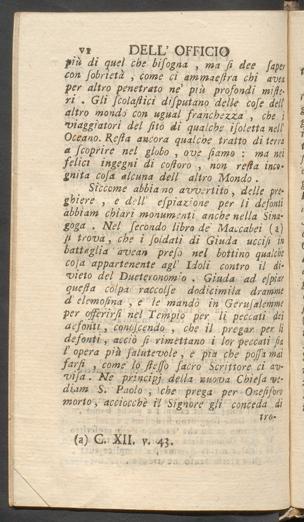 VI DELL' OFFICIO
più di quel che bisogna , ma si dee saper
con sobrietà , come ci ammaestra chi avea
per altro penetrato ne' più profondi miste-
ri . Gli scolastici disputano delle cose dell'
altro mondo con ugual franchezza , che i
viaggiatori del sito di qualche isoletta nell'
Oceano. Resta ancora qualche tratto di terra
a scoprire nel globo , ove siamo : ma nei
felici ingegni di costoro , non resta inco-
gnita cosa alcuna dell' altro Mondo .
Siccome abbiano avvertito , delle pre-
ghiere , e dell' espiazione per li defonti
abbiam chiari monumenti anche nella Sina-
goga . Nel secondo libro de' Maccabei (a)
si trova , che i soldati di Giuda uccisi in
battaglia avean preso nel bottino qualche
cosa appartenente agl' Idoli contro il di-
vieto del Deuteronomio . Giuda ad espiar
questa colpa raccolse dodicimila dramme
d' elemosina , e le mandò in Gerusalemme
per offerirsi nel Tempio per li peccati dei
defonti , conoscendo , che il pregar per li
defonti , acciò si rimettano i lor peccati sia
l' opera più salutevole , e pia che possa mai
farsi , come lo stesso sacro Scrittore ci av-
visa . Ne' principj della nuova Chiesa ve-
diam S. Paolo , che prega per Onesiforo
morto , acciocchè il Signore gli conceda di
tro-
(a) C. XII. v. 43.